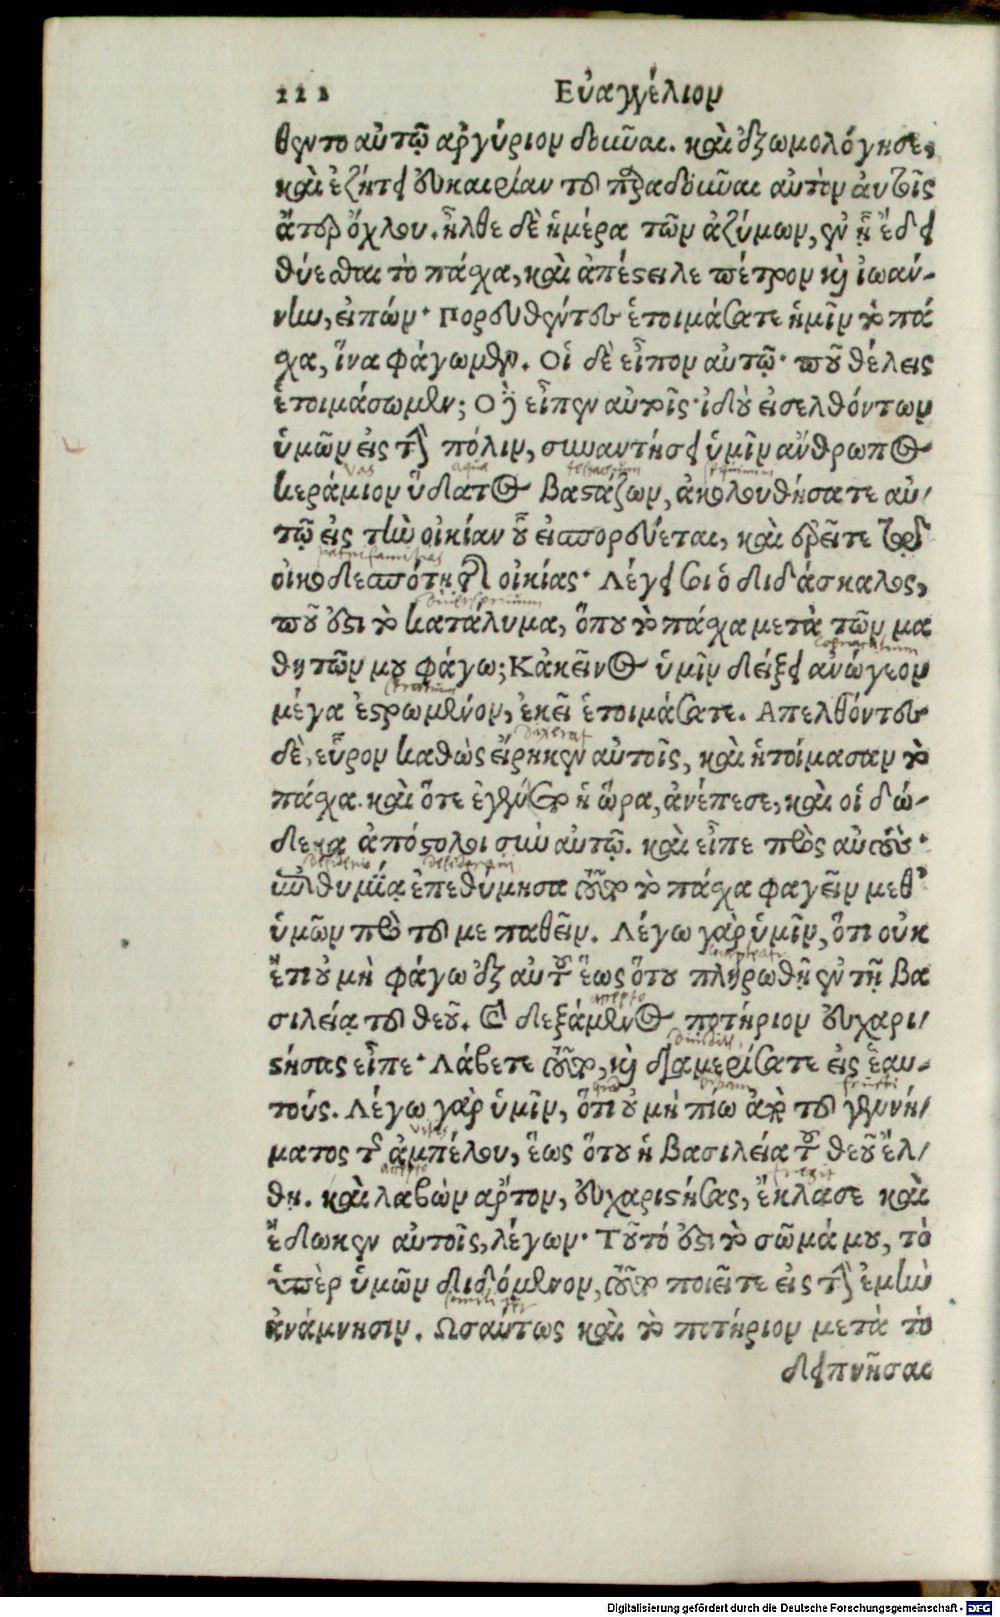 222 Εὐαγγέλιον
θεντο αὐτῷ ἀργύριον δοῦναι. καὶ ἐξωμολόγησε,
καὶ ἐζήτει εὐκαιρίαν τοῦ παραδοῦναι αὐτὸν αὐτοῖς
ἄτερ ὄχλου. ἦλθε δὲ ἡ ἡμέρα τῶν ἀζύμων, ἐν ᾗ ἔδει
θύεσθαι τὸ πάσχα, καὶ ἀπέστειλε πέτρον καὶ ἰωάν-
νην, εἰπών· Πορευθέντες ἑτοιμάσατε ἡμῖν τὸ πά
σχα, ἵνα φάγωμεν. Οἱ δὲ εἶπον αὐτῷ· ποῦ θέλεις
ἑτοιμάσωμεν; Ὁ δὲ εἶπεν αὐτοῖς· ἰδοὺ εἰσελθόντων
ὑμῶν εἰς τὴν πόλιν, συναντήσει ὑμῖν ἄνθρωπος
vas aqua
κεράμιον ὕδατος βαστάζων, ἀκολουθήσατε αὐ/
τῷ εἰς τὴν οἰκίαν οὗ εἰσπορεύεται, καὶ ἐρεῖτε τῷ
patrifamilias
οἰκοδεσπότῃ τῆς οἰκίας· Λέγει σοι ὁ διδάσκαλος,
diversorium
ποῦ ἐστι τὸ κατάλυμα, ὅπου τὸ πάσχα μετὰ τῶν μα
θητῶν μου φάγω; Κἀκεῖνος ὑμῖν δείξει ἀνώγεον
stratum
μέγα ἐστρωμένον, ἐκεῖ ἑτοιμάσατε. Ἀπελθόντες
dixerat
δὲ, εὗρον καθὼς εἴρηκεν αὐτοῖς, καὶ ἡτοίμασαν τὸ
πάσχα. καὶ ὅτε ἐγένετο ἡ ὥρα, ἀνέπεσε, καὶ οἱ δώ-
δεκα ἀπόστολοι σὺν αὐτῷ. καὶ εἶπε πρὸς αὐτούς·
desiderio desideravi
ἐπιθυμίᾳ ἐπεθύμησα τοῦτο τὸ πάσχα φαγεῖν μεθ᾽
ὑμῶν πρὸ τοῦ με παθεῖν. Λέγω γὰρ ὑμῖν, ὅτι οὐκ
ἔτι οὐ μὴ φάγω ἐξ αὐτοῦ ἕως ὅτου πληρωθῇ ἐν τῇ βα
accepto
σιλείᾳ τοῦ θεοῦ. Καὶ δεξάμενος ποτήριον εὐχαρι/
στήσας εἶπε· Λάβετε τοῦτο, καὶ διαμερίσατε εἰς ἑαυ-
fructu
τούς. Λέγω γὰρ ὑμῖν, ὅτι οὐ μὴ πίω ἀπὸ τοῦ γεννή/
vitis
ματος τῆς ἀμπέλου, ἕως ὅτου ἡ βασιλεία τοῦ θεοῦ ἔλ/
accepto fregit
θῃ. καὶ λαβὼν ἄρτον, εὐχαριστήσας, ἔκλασε καὶ
ἔδωκεν αὐτοῖς, λέγων· Τοῦτό ἐστι τὸ σῶμά μου, τὸ
ὑπὲρ ὑμῶν διδόμενον, τοῦτο ποιεῖτε εἰς τὴν ἐμὴν
ἀνάμνησιν. Ὡσαύτως καὶ τὸ ποτήριον μετὰ τὸ
δειπνῆσαι
Digitalisierung gefördert durch die Deutsche Forschungsgemeinschaft - DFG